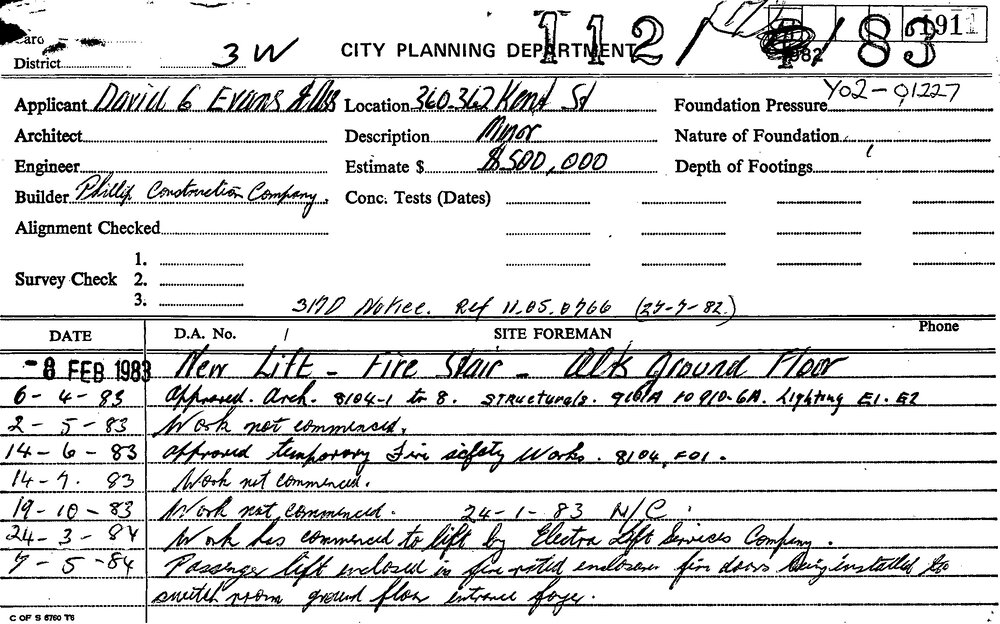 Card
District 3 W CITY PLANNING DEPARTMENT 112/ /83 1911
1982
Applicant David G Evans & Ass Location 360.362 Kent St Foundation Pressure Y02-01227
Architect Description Minor Nature of Foundation
Engineer Estimate $ $500,000 Depth of Footings
Builder Phillip Construction Company. Conc. Tests (Dates)
Alignment Checked
1.
Survey Check 2.
3.
317D Notice. Ref 11.05.0766 (27-7-82.)
DATE D.A. No. / SITE FOREMAN Phone
-8 FEB 1983 New Lift - Fire Stair - Alts Ground Floor
6-4-83 Approved. Arch. 8104-1 to 8. Structurals. 910/A to 910-6A. Lighting E1. E2
2-5-83 Work not commenced.
14-6-83 Approved temporary Fire safety Works. 8104, F01.
14-7. 83 Work not commenced.
19-10-83 Work not commenced. 24-1-83 N/C.
24-3-84 Work has commenced to lift by Electra Lift Services Company.
7-5-84 Passenger lift enclosed in fire rated enclosure fire doors being installed to
switch room ground floor entrance foyer.
C OF S 6760 T6